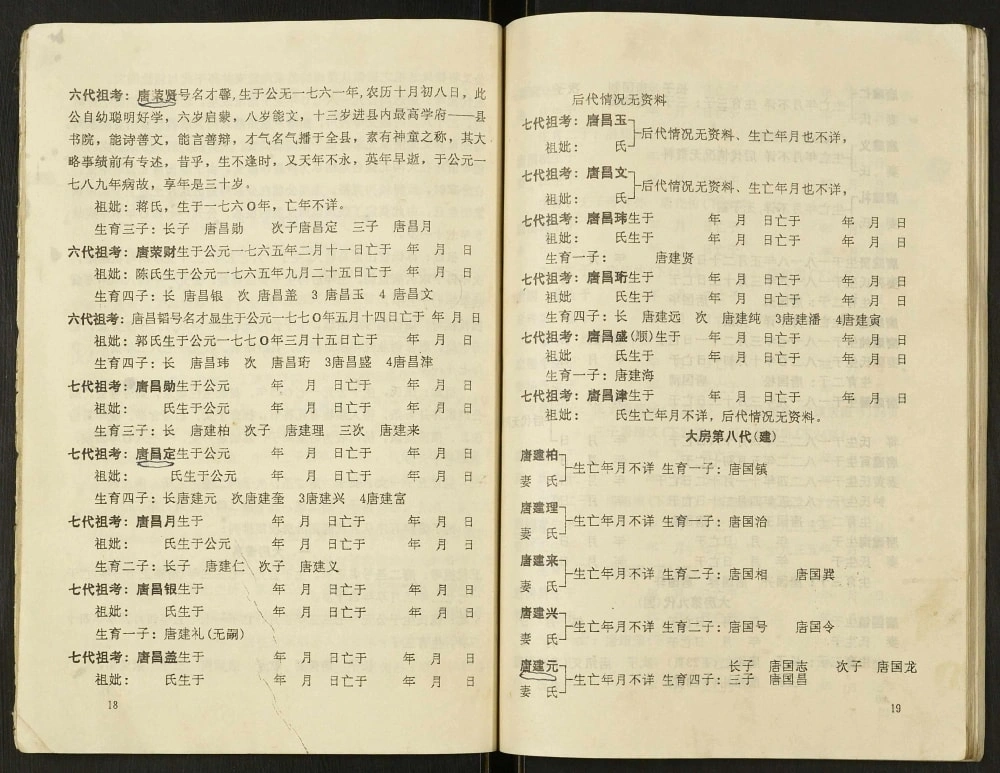 六代祖考：唐荣贤号名才馨，生于公无一七六一年，农历十月初八日，此
公自幼聪明好学，六岁启蒙，八岁能文，十三岁进县内最高学府——县
书院，能诗善文，能言善辩，才气名气播于全县，素有神童之称，其大
略事绩前有专述，昔乎，生不逢时，又天年不永，英年早逝，于公元一
七八九年病故，享年是三十岁。
祖妣：蒋氏，生于一七六0年，亡年不详。
生育三子：长子 唐昌勋 次子唐昌定 三子 唐昌月
六代祖考：唐荣财生于公元一七六五年二月十一日亡于 年 月 日
祖妣：陈氏生于公元一七六五年九月二十五日亡于 年 月 日
生育四子：长 唐昌银 次 唐昌盖 3 唐昌玉 4 唐昌文
六代祖考：唐昌韬号名才显生于公元一七七0年五月十四日亡于 年 月 日
祖妣：郭氏生于公元一七七0年三月十五日亡于 年 月 日
生育四子：长 唐昌玮 次 唐昌珩 3唐昌盛 4唐昌津
七代祖考：唐昌勋生于公元 年 月 日亡于 年 月 日
祖妣： 氏生于公元 年 月 日亡于 年 月 日
生育三子：长 唐建柏 次子 唐建理 三次 唐建来
七代祖考：唐昌定生于公元 年 月 日亡于 年 月 日
祖妣： 氏生于公元 年 月 日亡于 年 月 日
生育四子：长唐建元 次唐建奎 3唐建兴 4唐建富
七代祖考：唐昌月生于 年 月 日亡于 年 月 日
祖妣： 氏生于公元 年 月 日亡于 年 月 日
生育二子：长子 唐建仁 次子 唐建义
七代祖考：唐昌银生于 年 月 日亡于 年 月 日
祖妣： 氏生于 年 月 日亡于 年 月 日
生育一子：唐建礼(无嗣)
七代祖考：唐昌盖生于 年 月 日亡于 年 月 日
祖妣： 氏生于 年 月 日亡于 年 月 日
18
后代情况无资料
七代祖考：唐昌玉
后代情况无资料、生亡年月也不详，
祖妣： 氏
七代祖考：唐昌文
后代情况无资料、生亡年月也不详，
祖妣： 氏
七代祖考：唐昌玮生于 年 月 日亡于 年 月 日
祖妣： 氏生于 年 月 日亡于 年 月 日
生育一子： 唐建贤
七代祖考：唐昌珩生于 年 月 日亡于 年 月 日
祖妣 氏生于 年 月 日亡于 年 月 日
生育四子：长 唐建远 次 唐建纯 3唐建潘 4唐建寅
七代祖考：唐昌盛(顺)生于 年 月 日亡于 年 月 日
祖妣 氏生于 年 月 日亡于 年 月 日
生育一子：唐建海
七代祖考：唐昌津生于 年 月 日亡于 年 月 日
祖妣： 氏生亡年月不详，后代情况无资料。
大房第八代(建)
唐建柏
生亡年月不详 生育一子：唐国镇
妻 氏
唐建理
生亡年月不详 生育一子：唐国治
妻 氏
唐建来
生亡年月不详 生育二子：唐国相 唐国巽
妻 氏
唐建兴
生亡年月不详 生育二子：唐国号 唐国令
妻 氏
唐建元 长子 唐国志 次子 唐国龙
生亡年月不详 生育四子：三子 唐国昌
妻 氏
19